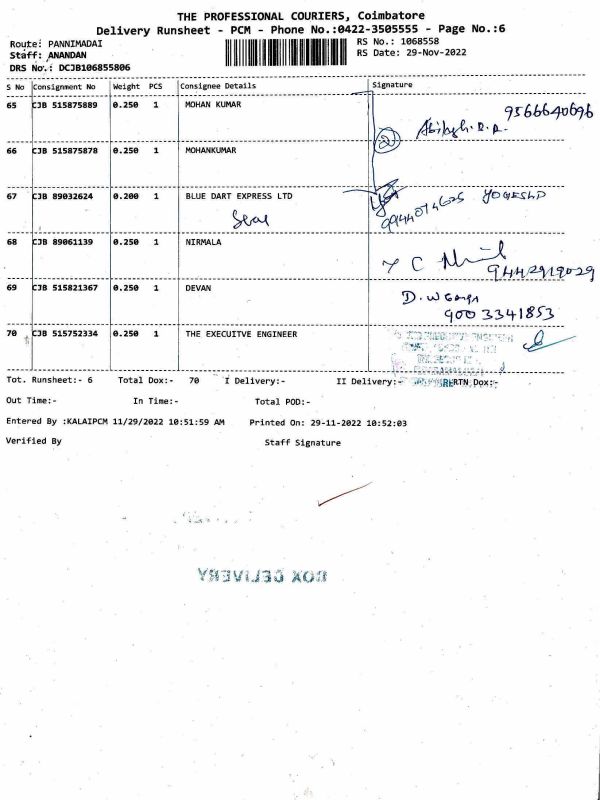 THE PROFESSIONAL COURIERS, Coimbatore
Delivery Runsheet - PCM - Phone No.:0422-3505555 - Page No.:6
Route: PANNIMADAI
RS No.: 1068558
Staff: ANANDAN
RS Date: 29-Nov-2022
DRS No.: DCJB106855806
S No Consignment No Weight PCS Consignee Details Signature
65 CJB 515875889 0.250 1 MOHAN KUMAR
9566640696
66 CJB 515875878 0.250 1 MOHANKUMAR
67 CJB 89032624 0.200 1 BLUE DART EXPRESS LTD
Seal
68 CJB 89061139 0.250 1 NIRMALA
9442919029
69 CJB 515821367 0.250 1 DEVAN
9003341853
70 CJB 515752334 0.250 1 THE EXECUITVE ENGINEER
Tot. Runsheet:- 6 Total Dox:- 70 I Delivery:- II Delivery:- RTN Dox:-
Out Time:- In Time:- Total POD:-
Entered By :KALAIPCM 11/29/2022 10:51:59 AM Printed On: 29-11-2022 10:52:03
Verified By Staff Signature
BOX DELIVERY